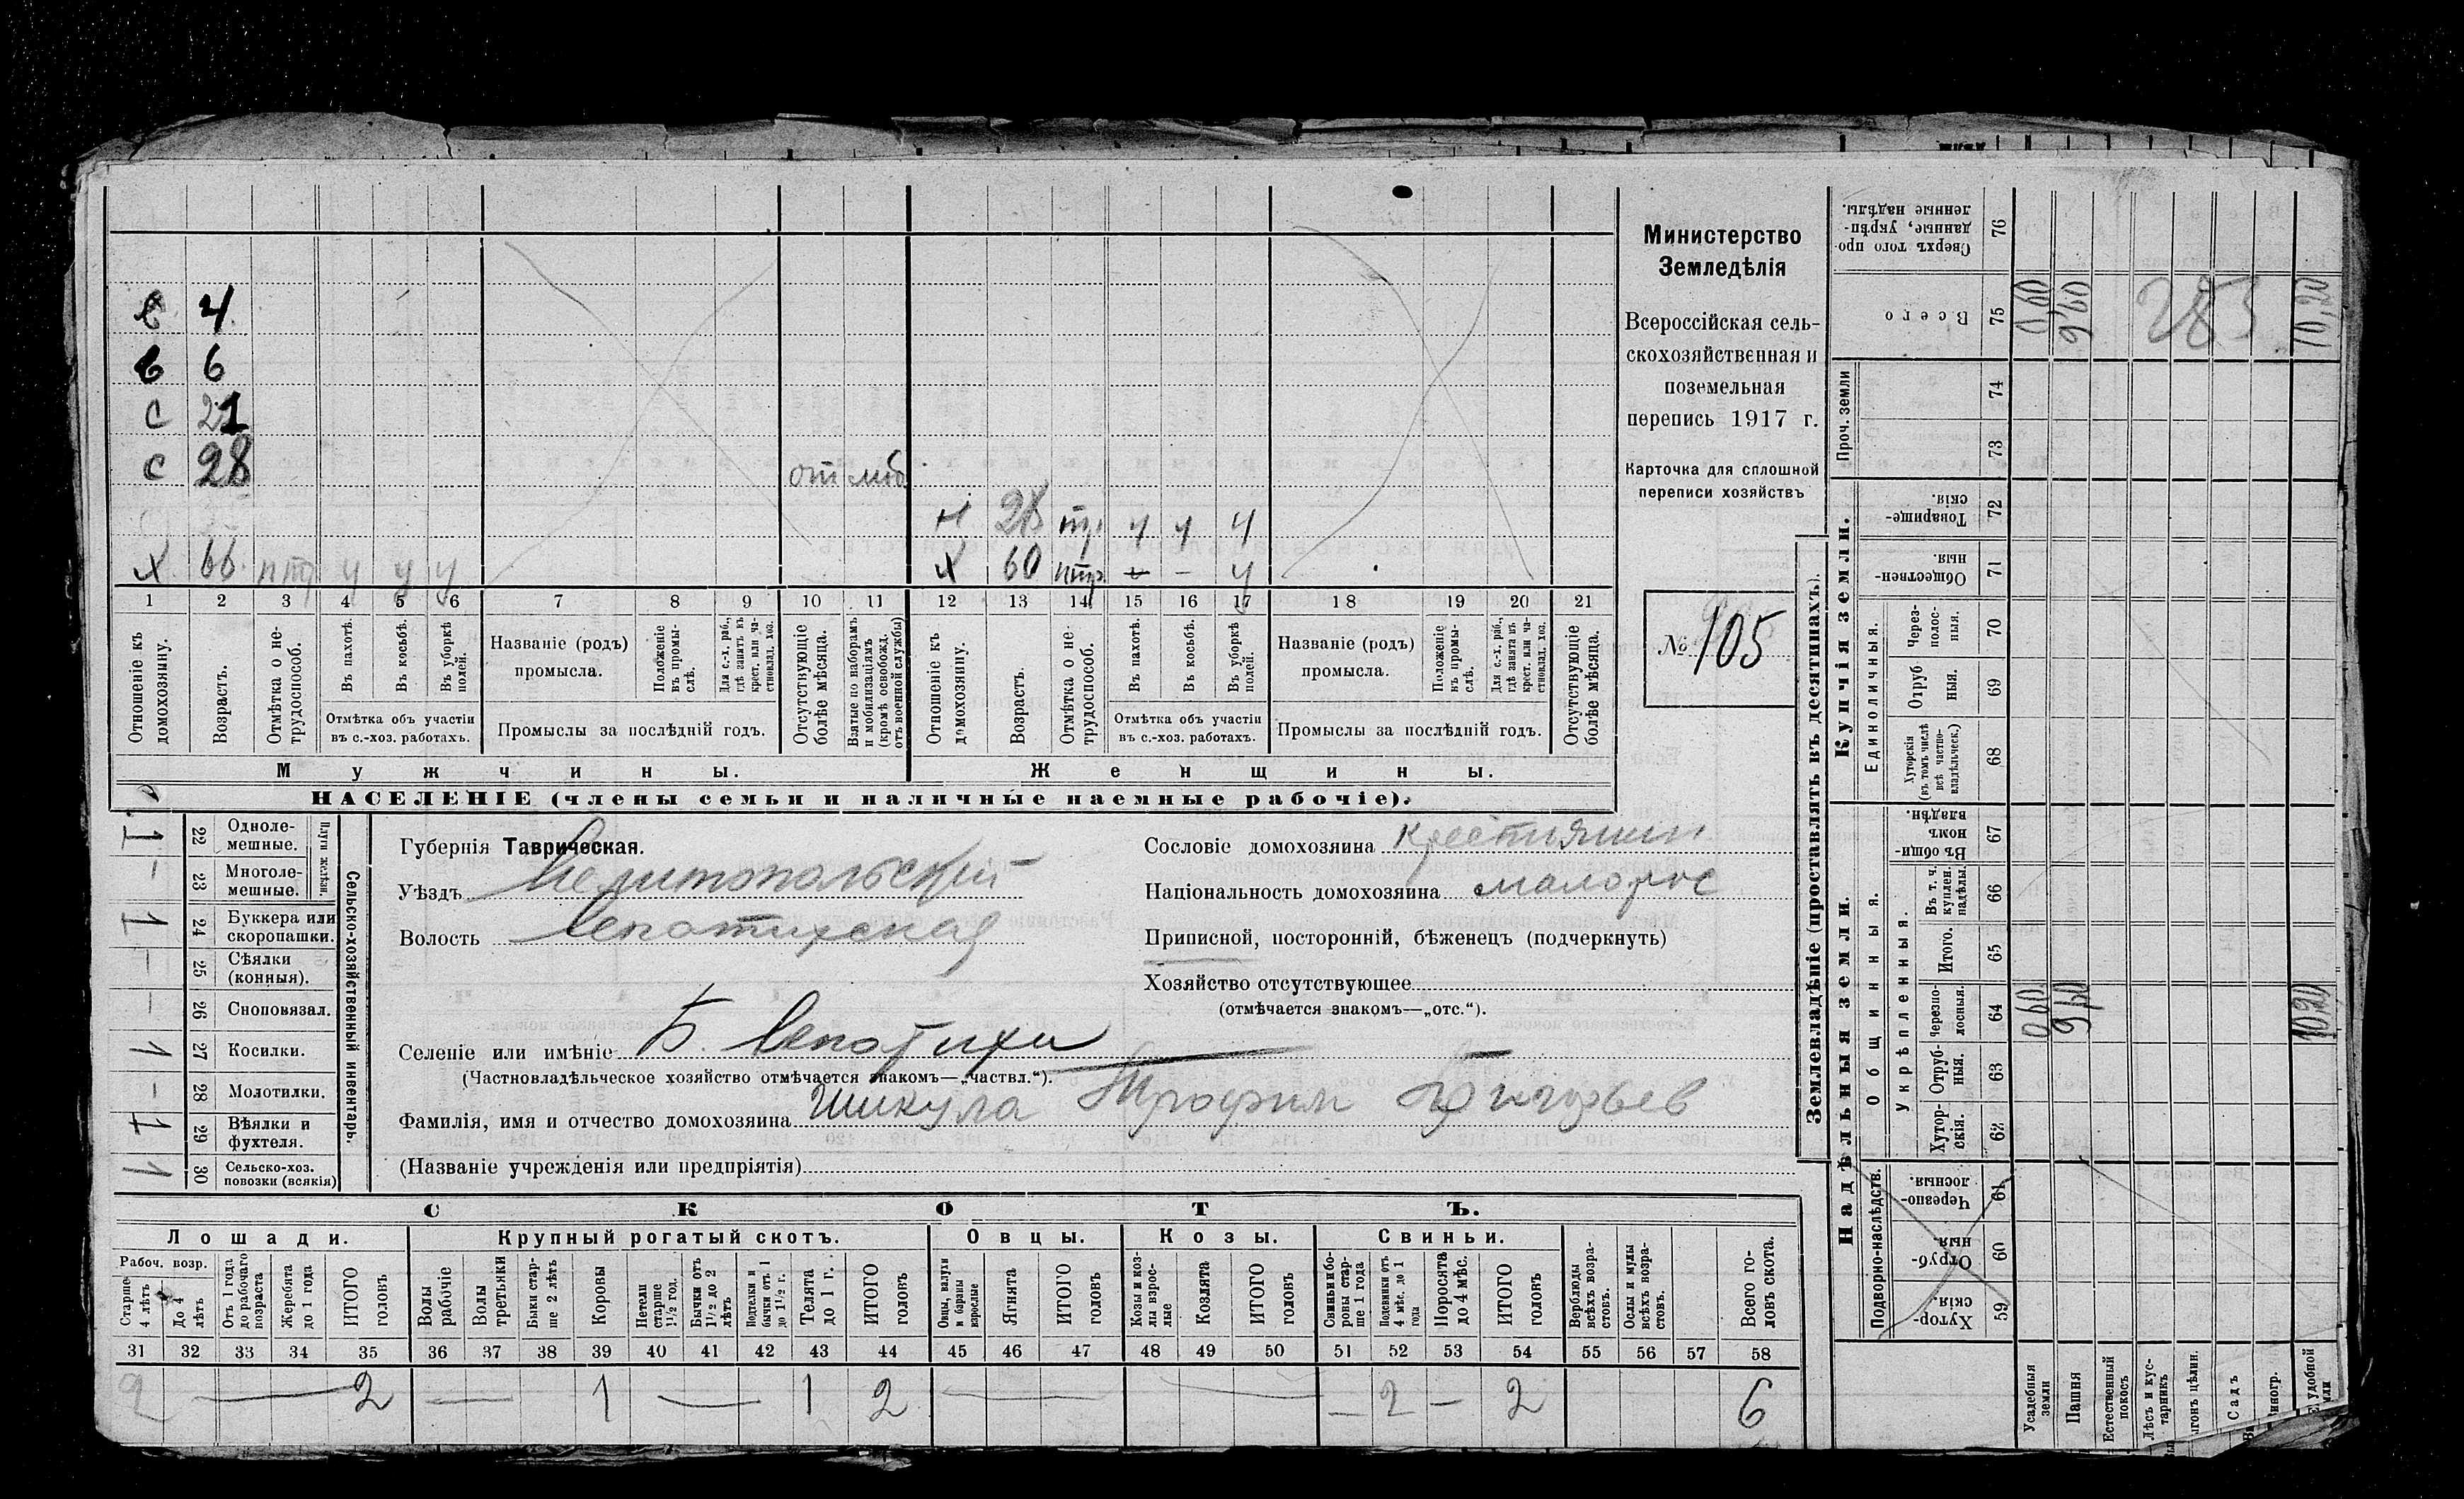 в 4
в 6
с 21
с 28 от моб
н 28 тр. у у у
х 66 птр у у у х 60 нтр – – у
1 2 3 4 5 6 7 8 9 10 11 12 13 14 15 16 17 18 19 20 21
Отношеніе къ домохозяину.
Возрастъ.
Отмѣтка о нетрудоспособ.
Въ пахотѣ.
Въ косьбѣ.
Въ уборкѣ полей.
Отмѣтка объ участіи
въ с.-хоз. работахъ.
Названіе (родъ)
промысла.
Положеніе въ промыслѣ.
Для с.-х. раб., гдѣ занятъ въ крест. или частновлад. хоз.
Промыслы за послѣдній годъ.
Отсутствующіе болѣе мѣсяца.
Взятые по наборамъ и мобилизаціямъ (кромѣ освобожд. отъ военной службы)
Отношеніе къ домохозяину.
Возрастъ.
Отмѣтка о нетрудоспособ.
Въ пахотѣ.
Въ косьбѣ.
Въ уборкѣ полей.
Отмѣтка объ участіи
въ с.-хоз. работахъ.
Названіе (родъ)
промысла.
Положеніе въ промыслѣ.
Для с.-х. раб., гдѣ занята въ крест. или частновлад. хоз.
Промыслы за послѣдній годъ.
Отсутствующіе болѣе мѣсяца.
Мужчины.
Женщины.
НАСЕЛЕНІЕ (члены семьи и наличные наемные рабочіе).
Министерство
Земледѣлія
Всероссійская сель-
скохозяйственная и
поземельная
перепись 1917 г.
Карточка для сплошной
переписи хозяйствъ
№ 105
1 22 Одноле-
мешные.
– 23 Многоле-
мешные.
Плуги желѣзн.
1 24 Буккера или
скоропашки.
– 25 Сѣялки
(конныя).
– 26 Сноповязал.
1 27 Косилки.
– 28 Молотилки.
1 29 Вѣялки и
фухтеля.
1 30 Сельско-хоз.
повозки (всякія)
Сельско-хозяйственный инвентарь.
Губернія Таврическая.
Уѣздъ Мелитопольский
Волость Лепатихская
Селеніе или имѣніе Б. Лепатихи
(Частновладѣльческое хозяйство отмѣчается знакомъ—„частвл.“).
Фамилія, имя и отчество домохозяина Шикула Трофим Григорьев
(Названіе учрежденія или предпріятія)
Сословіе домохозяина крестиянин
Національность домохозяина малорос
Приписной, посторонній, бѣженецъ (подчеркнуть)
Хозяйство отсутствующее
(отмѣчается знакомъ—„отс.“).
СКОТЪ.
Лошади. Крупный рогатый скотъ. Овцы. Козы. Свиньи.
Рабоч. возр.
Старше 4 лѣтъ
До 4 лѣтъ
Отъ 1 года до рабочаго возраста
Жеребята до 1 года
ИТОГО головъ
Волы рабочіе
Волы третьяки
Быки старше 2 лѣтъ
Коровы
Нетели старше 1½ год.
Бычки отъ 1½ до 2 лѣтъ
Подтелки и бычки отъ 1 до 1½ г.
Телята до 1 г.
ИТОГО головъ
Овцы, валухи и бараны взрослые
Ягнята
ИТОГО головъ
Козы и козлы взрослые
Козлята
ИТОГО головъ
Свиньи и боровы старше 1 года
Подсвинки отъ 4 мѣс. до 1 года
Поросята до 4 мѣс.
ИТОГО головъ
Верблюды всѣхъ возрастовъ.
Ослы и мулы всѣхъ возрастовъ.
Всего головъ скота.
31 32 33 34 35 36 37 38 39 40 41 42 43 44 45 46 47 48 49 50 51 52 53 54 55 56 57 58
2 — 2 — 1 — 1 2 — — – 2 – 2 6
Землевладѣніе (проставлять въ десятинахъ).
Надѣльныя земли.
Купчія земли.
Проч. земли
Подворно-наслѣдств.
Общинныя.
Укрѣпленныя.
Единоличныя.
Сверхъ того проданные, укрѣпленные надѣлы. 76
Всего 75 0,60 9,60 283 10,20
74
73
Товарищескія. 72
Общественныя. 71
Черезполосныя. 70
Отрубныя. 69
Хуторскія (въ томъ числѣ всѣ частновладѣльческ.) 68
Въ общинномъ владѣн. 67
Въ т. ч. куплен. надѣлы. 66
Итого. 65
Черезполосныя. 64 0,60 9,60 10,20
Отрубныя. 63
Хуторскія. 62
Черезполосныя. 61
Отрубныя. 60
Хуторскія. 59
Усадебныя земли
Пашня
Естественный покосъ
Лѣсъ и кустарникъ
Садъ